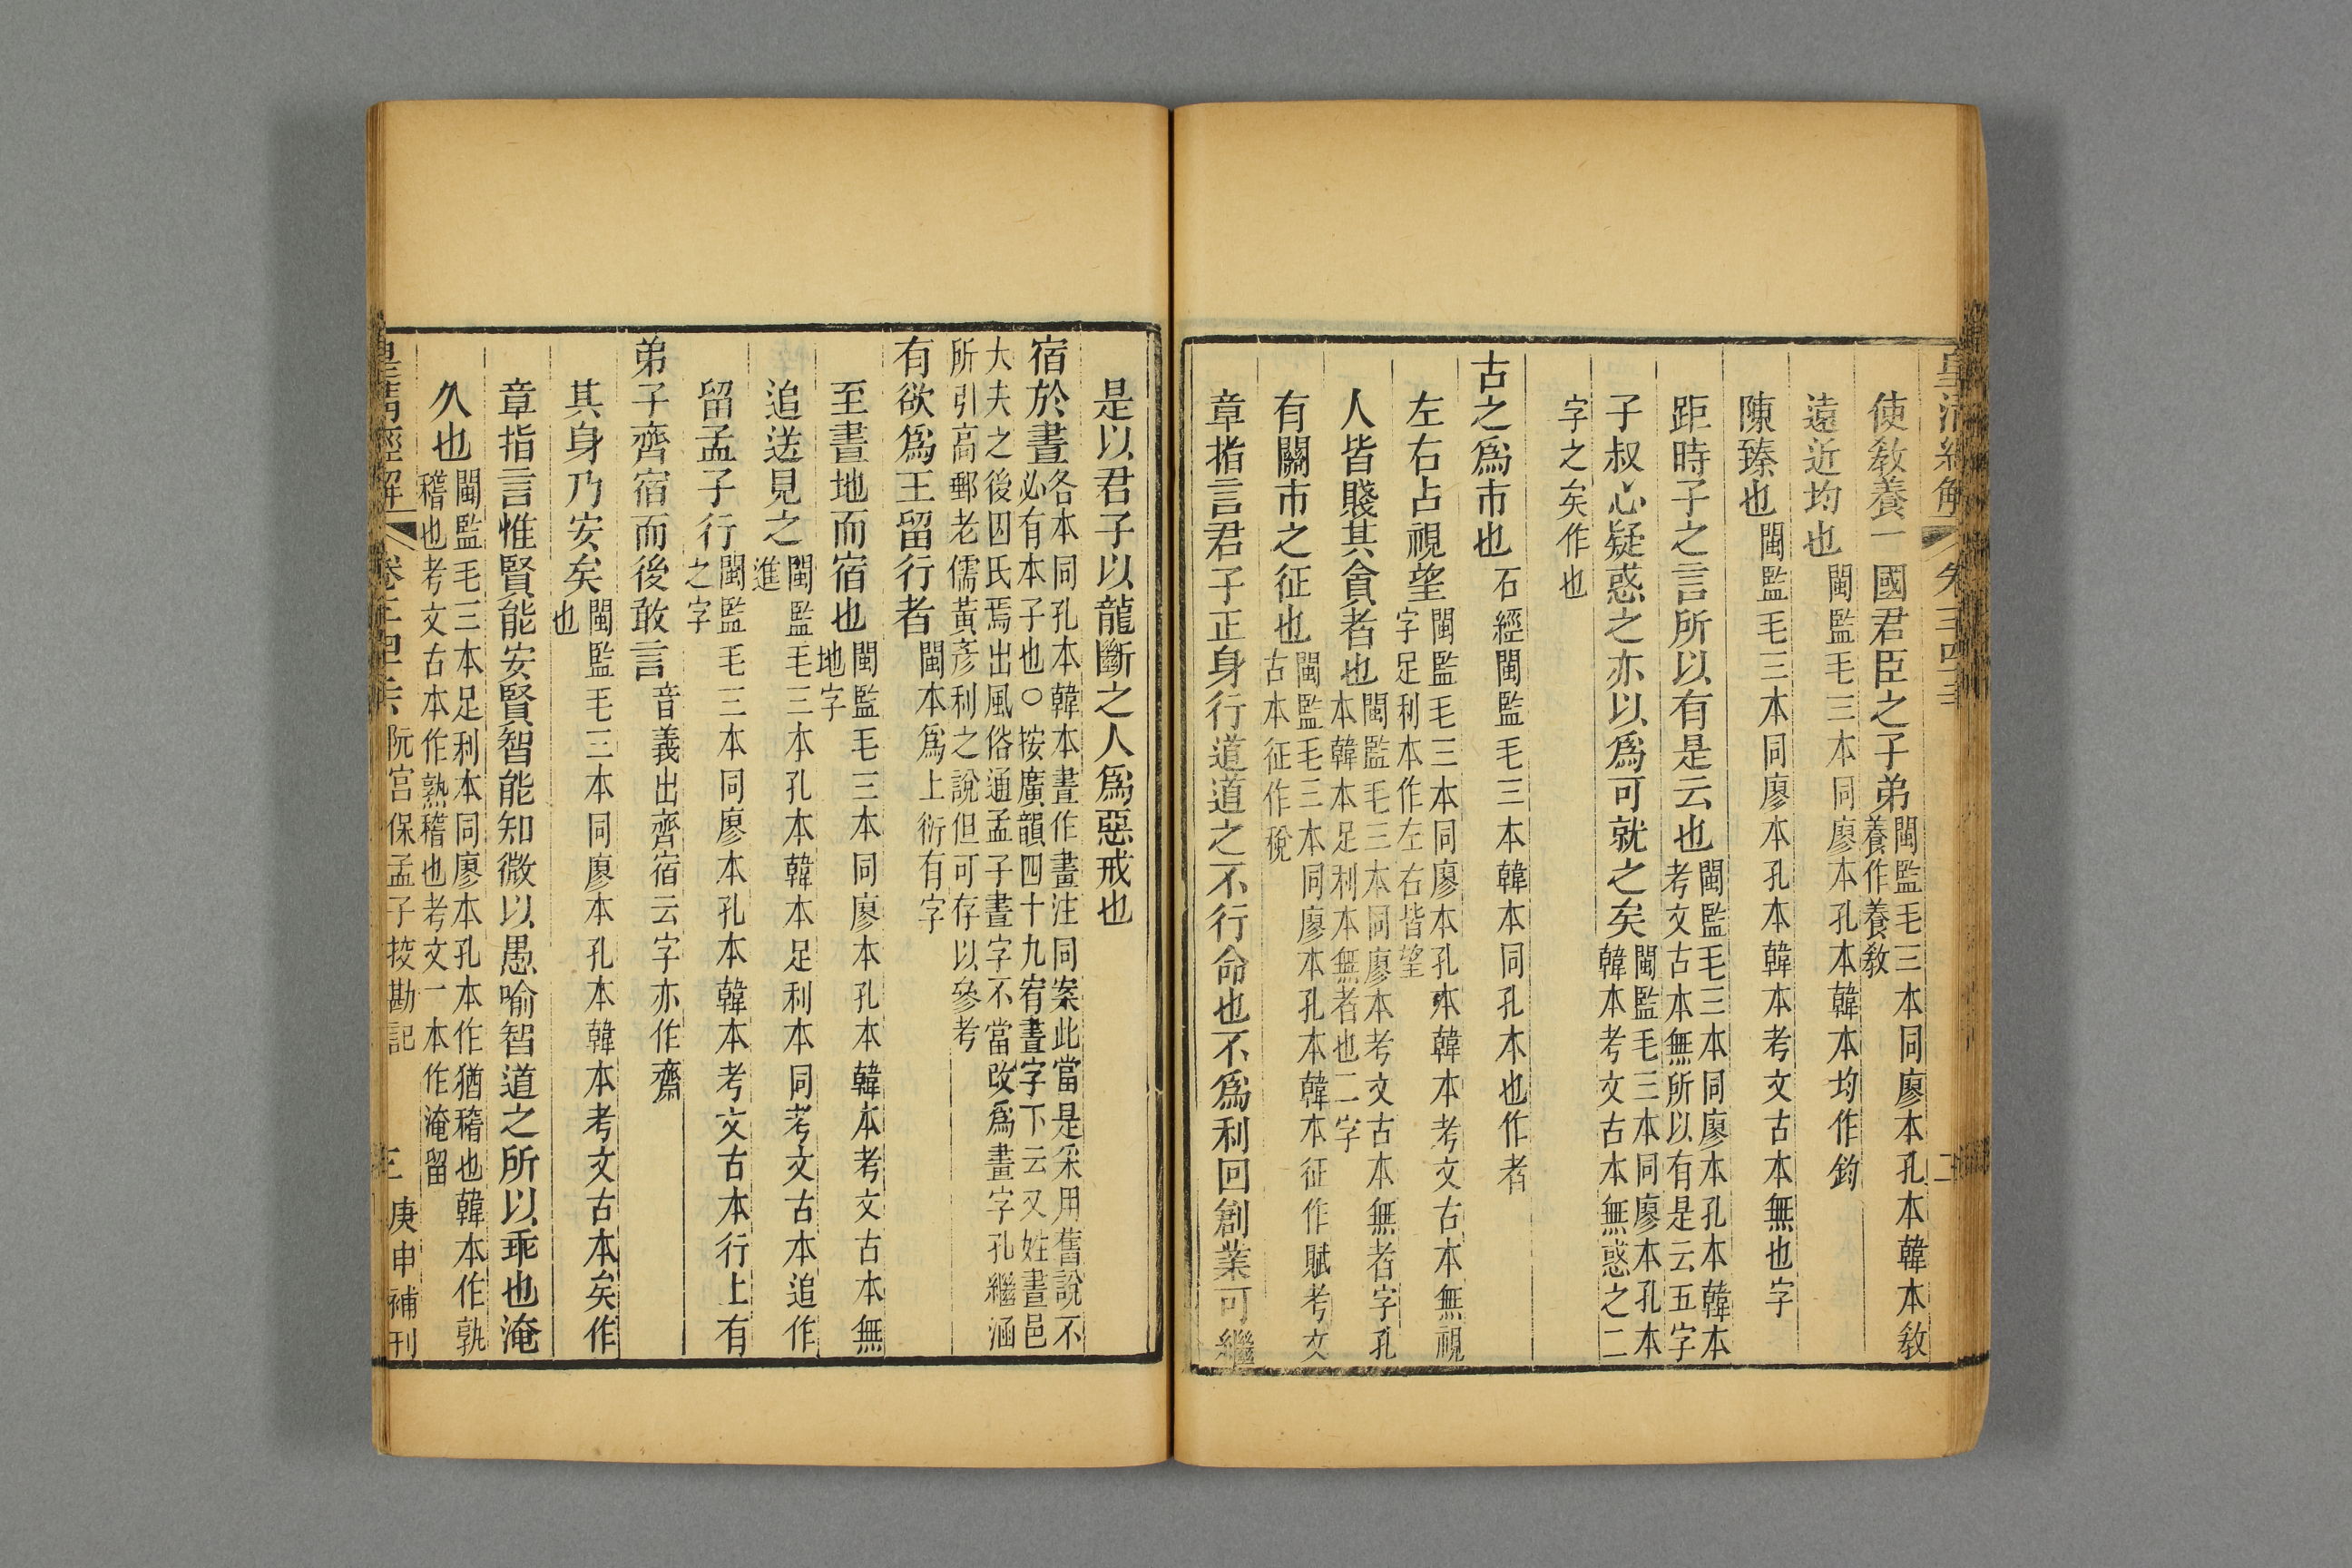 使敎養一國君臣之子弟閩監毛三本同廖本孔本韓本敎養作養敎
遠近均也閩監毛三本同廖本孔本韓本均作鈞
陳臻也閩監毛三本同廖本孔本韓本考文古本無也字
距時子之言所以有是云也閩監毛三本同廖本孔本韓本考文古本無所以有是云五字
子叔心疑惑之亦以爲可就之矣閩監毛三本同廖本孔本韓本考文古本無惑之二
字之矣作也
古之爲市也石經閩監毛三本韓本同孔本也作者
左右占視望閩監毛三本同廖本孔本韓本考文古本無視字足利本作左右皆望
人皆賤其貪者也閩監毛三本同廖本考文古本無者字孔本韓本足利本無者也二字
有關市之征也閩監毛三本同廖本孔本韓本征作賦考文古本征作稅
章指言君子正身行道道之不行命也不爲利回創業可繼
是以君子以龍斷之人爲惡戒也
宿於晝各本同孔本韓本晝作畫注同案此當是采用舊說不必有本子也○按廣韻四十九宥晝字下云又姓晝邑
大夫之後因氏焉出風俗通孟子晝字不當改爲畫字孔繼涵所引高郵老儒黃彥利之說但可存以參考
有欲爲王留行者閩本爲上衍有字
至晝地而宿也閩監毛三本同廖本孔本韓本考文古本無地字
追送見之閩監毛三本孔本韓本足利本同考文古本追作進
留孟子行閩監毛三本同廖本孔本韓本考文古本行上有之字
弟子齊宿而後敢言音義出齊宿云字亦作齋
其身乃安矣閩監毛三本同廖本孔本韓本考文古本矣作也
章指言惟賢能安賢智能知微以愚喻智道之所以乖也淹
久也閩監毛三本足利本同廖本孔本作猶稽也韓本作孰稽也考文古本作熟稽也考文一本作淹留
皇淸經解 阮宮保孟子挍勘記 庚申補刊